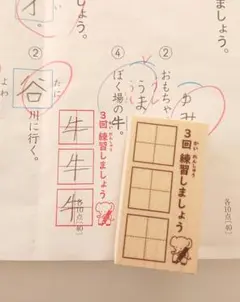 ②
おもちゃ
ゆみ
④
うま
ぼく場の牛。
しょう。
②
たに
谷
川に行く。
よわ
3回練習しましょう
牛
牛
牛
かい れんしゅう
3回練習しましょう
各10点[40]
各10点[40]